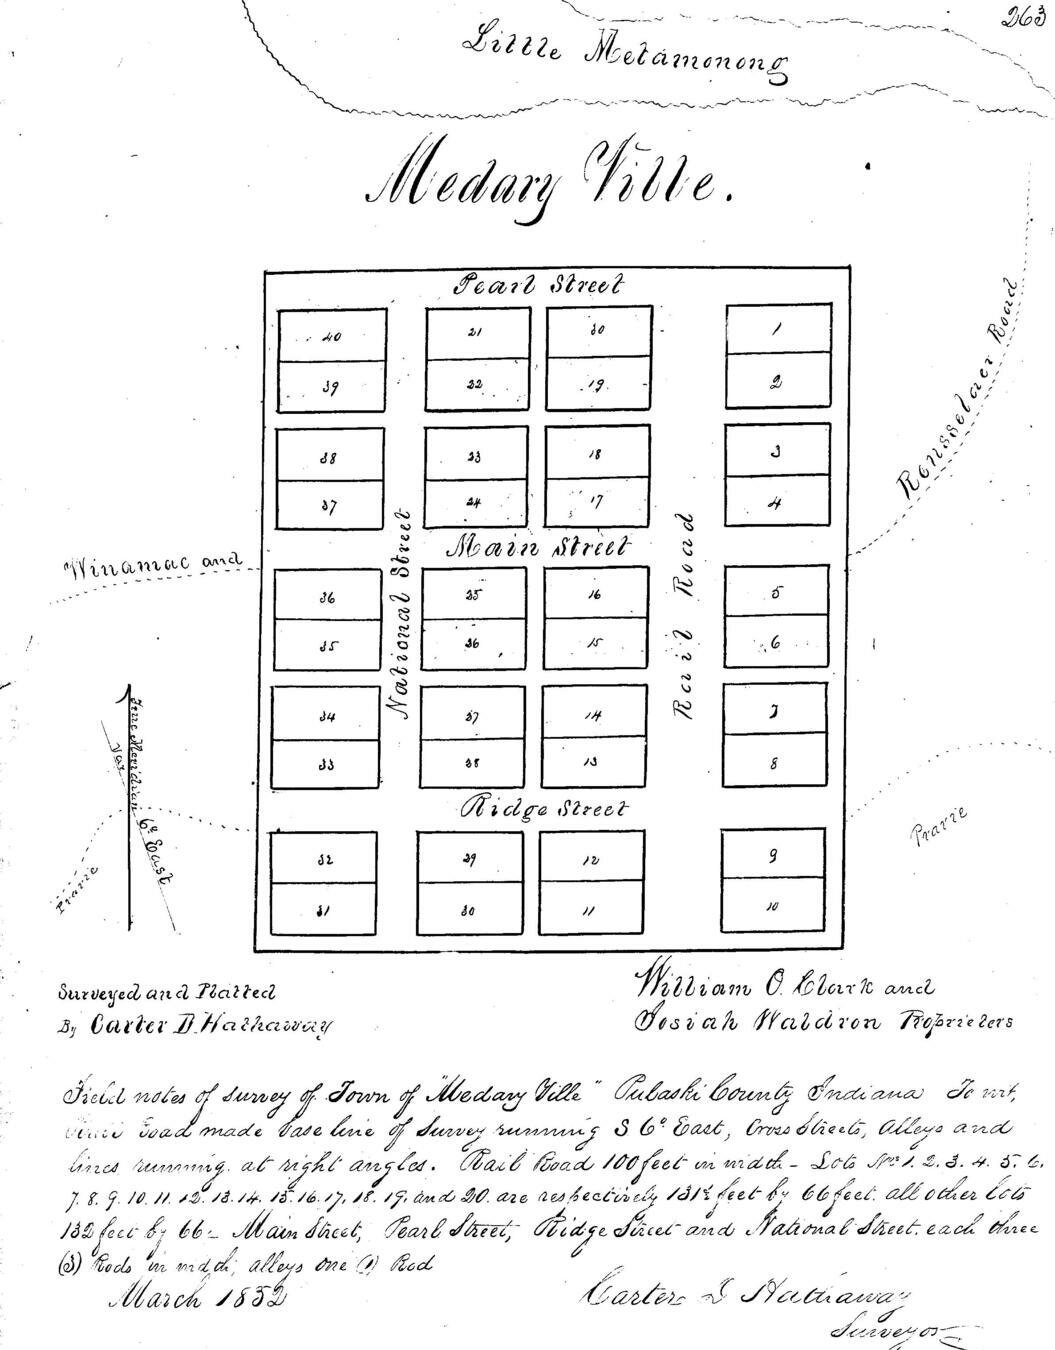 263
Little Metamonong
Medary Ville.
Pearl Street
40 21 20 1
39 22 19 2
38 23 18 3
37 24 17 4
Main Street
National Street
Rail Road
Rensselaer Road
Winamac and
36 25 16 5
35 26 15 6
34 27 14 7
33 28 13 8
Ridge Street
True Meridian
Var 6° East
Prarie
Prarie
32 29 12 9
31 30 11 10
Surveyed and Platted
By Carter D. Hathaway
William O. Clark and
Josiah Waldron Proprieters
Field notes of survey of Town of "Medary Ville" Pulaski County Indiana To wit,
Road made base line of Survey running S 6° East, Cross Streets, Alleys and
lines running at right angles. Rail Road 100 feet in width - Lots Nos 1. 2. 3. 4. 5. 6.
7. 8. 9. 10. 11. 12. 13. 14. 15. 16. 17. 18. 19. and 20. are respectively 131½ feet by 66 feet. all other lots
132 feet by 66 - Main Street, Pearl Street, Ridge Street and National Street. each three
(3) Rods in width; alleys one (1) Rod
March 1852
Carter D Hathaway
Surveyor